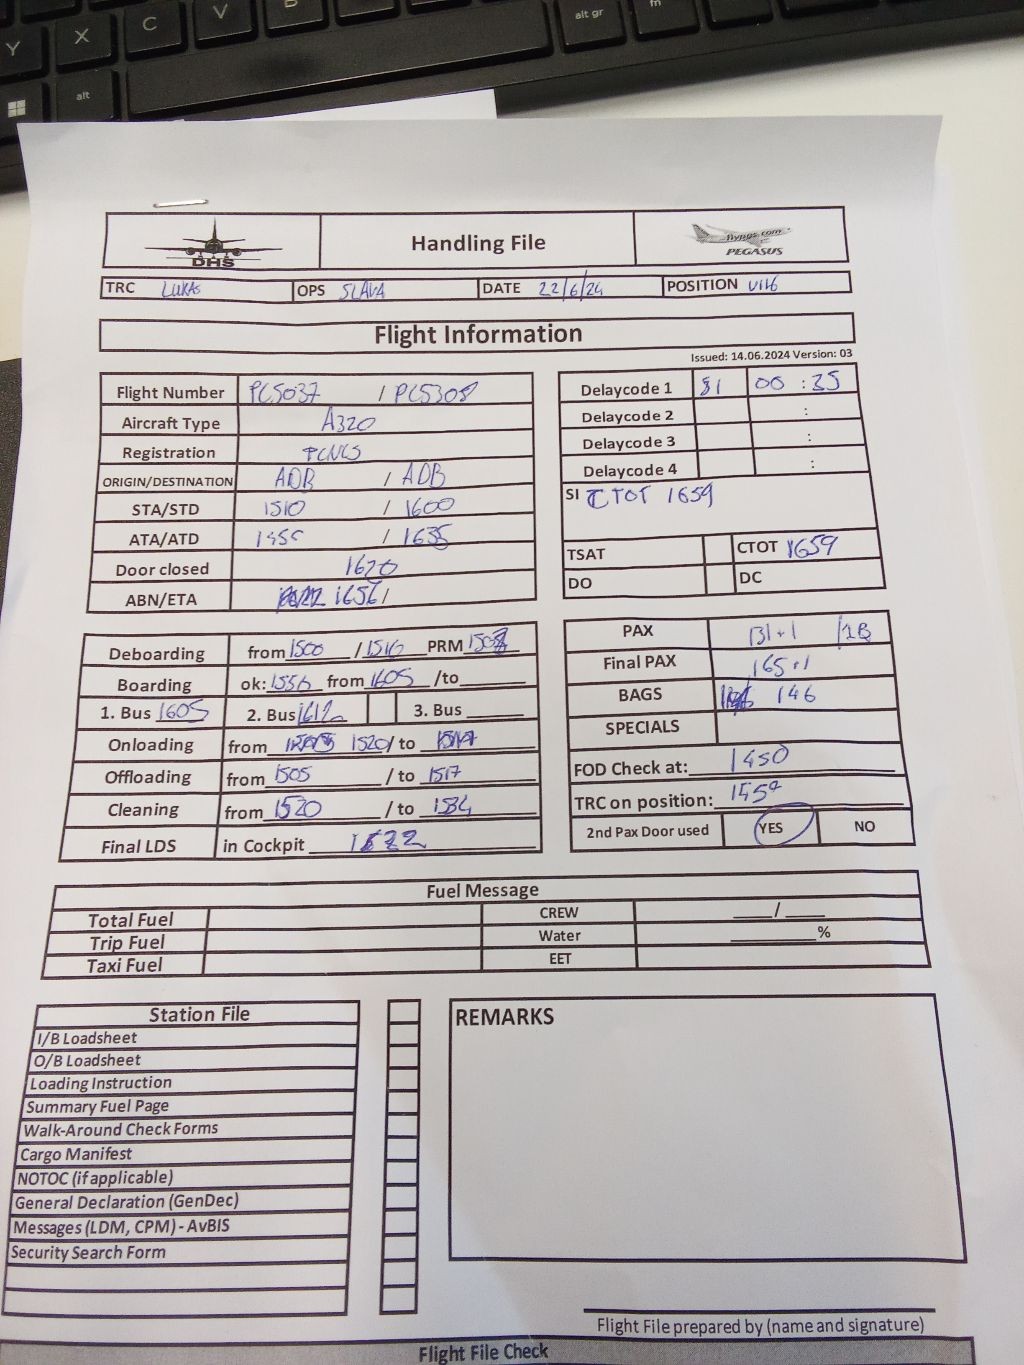 Y X C V B alt gr fn
alt
DHS
Handling File
flypgs.com
PEGASUS
TRC LUKAS OPS SLAVA DATE 22/6/24 POSITION V116
Flight Information
Issued: 14.06.2024 Version: 03
Flight Number PC5037 / PC5308
Aircraft Type A320
Registration TCNCS
ORIGIN/DESTINATION ADB / ADB
STA/STD 1510 / 1600
ATA/ATD / 1635
Door closed 1620
ABN/ETA 1656 /
Delaycode 1 81 00 : 35
Delaycode 2 :
Delaycode 3 :
Delaycode 4 :
SI CTOT 1659
TSAT CTOT 1659
DO DC
Deboarding from 1500 / 1516 PRM
Boarding ok: 1556 from 1605 /to
1. Bus 1605 2. Bus 1612 3. Bus
Onloading from 1520 / to
Offloading from 1505 / to 1517
Cleaning from 1520 / to 1534
Final LDS in Cockpit 1622
PAX 131+1 /1B
Final PAX 165+1
BAGS 146
SPECIALS
FOD Check at: 1450
TRC on position:
2nd Pax Door used YES NO
Fuel Message
Total Fuel CREW /
Trip Fuel Water %
Taxi Fuel EET
Station File
I/B Loadsheet
O/B Loadsheet
Loading Instruction
Summary Fuel Page
Walk-Around Check Forms
Cargo Manifest
NOTOC (if applicable)
General Declaration (GenDec)
Messages (LDM, CPM) - AvBIS
Security Search Form
REMARKS
Flight File prepared by (name and signature)
Flight File Check